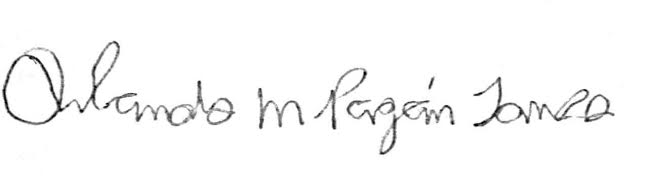 Orlando M Pagán Torres